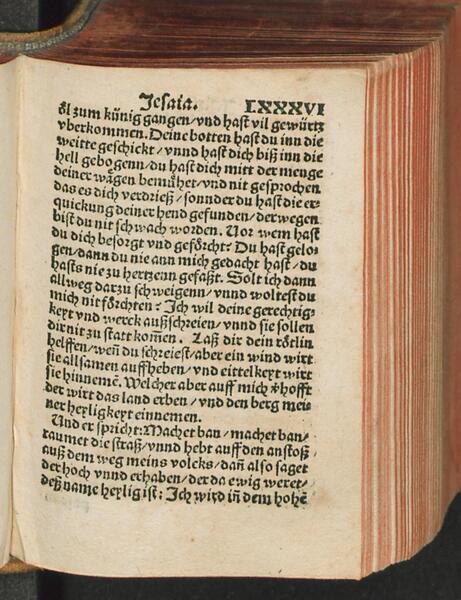 Jesaia. LXXXVI
oͤl zum künig gangen/vnd hast vil gewürtz
vberkommen. Deine botten hast du inn die
weitte geschickt/vnnd hast dich biß inn die
hell gebogenn/du hast dich mitt der menge
deiner waͤgen bemuͤhet/vnd nit gesprochen
das es dich verdrieß/sonnder du hast die er-
quickung deiner hend gefunden/derwegen
bist du nit schwach worden. Vor wem hast
du dich besorgt vnd gefoͤrcht? Du hast gelo-
gen/dann du nie ann mich gedacht hast/du
hasts nie zu hertzenn gefaßt. Solt ich dann
allweg darzu schweigenn/vnnd woltest du
mich nit foͤrchten? Ich wil deine gerechtig-
keyt vnd werck außschreien/vnnd sie sollen
dir nit zu statt kom̃en. Laß dir dein roͤtlin
helffen/weñ du schreiest/aber ein wind wirt
sie allsamen auffheben/vnd eittelkeyt wirt
sie hinnemẽ. Welcher aber auff mich v̉hofft
der wirt das land erben/vnd den berg mei-
ner heyligkeyt einnemen.
Und er spricht: Machet ban/machet ban/
raumet die straß/vnnd hebt auff den anstoß
auß dem weg meins volcks/dañ also saget
der hoch vnnd erhaben/der da ewig weret/
deß name heylig ist: Ich wird iñ dem hohẽ